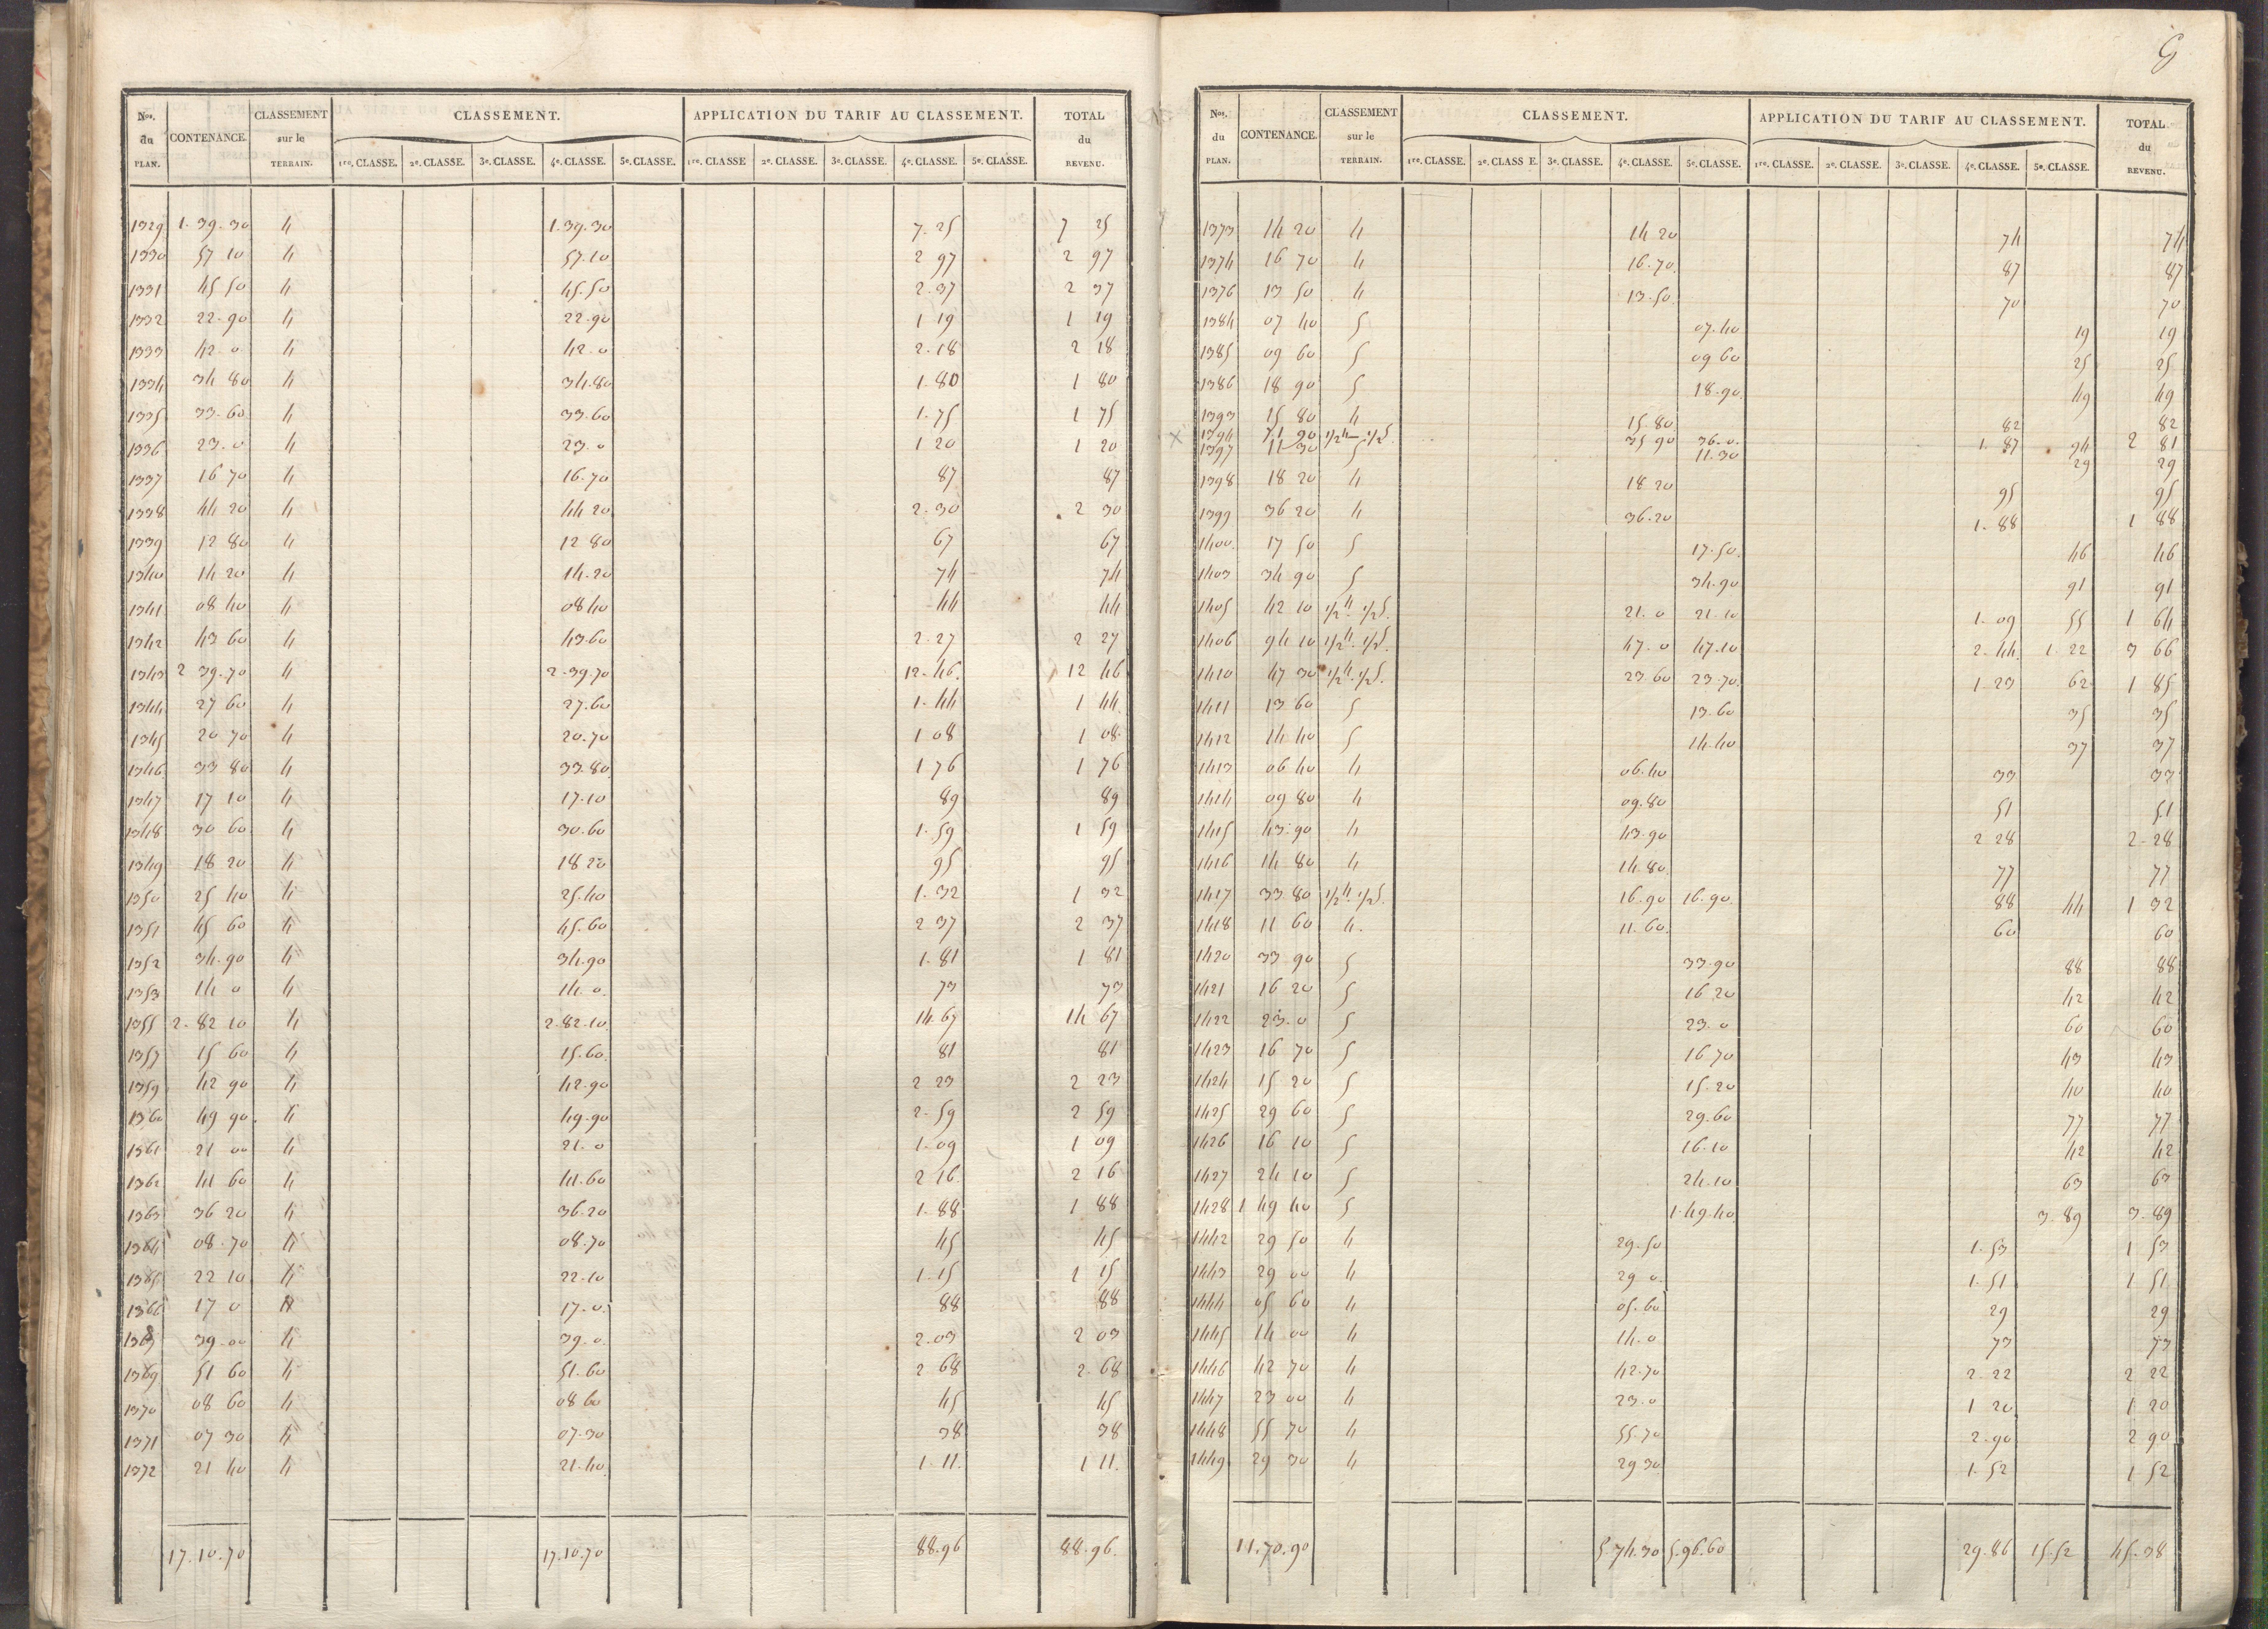 Nos. du PLAN. CONTENANCE. CLASSEMENT sur le TERRAIN. CLASSEMENT. APPLICATION DU TARIF AU CLASSEMENT. TOTAL du REVENU.
1re. CLASSE. 2e. CLASSE. 3e. CLASSE. 4e. CLASSE. 5e. CLASSE. 1re. CLASSE 2e. CLASSE. 3e. CLASSE. 4e. CLASSE. 5e. CLASSE.
1329 1. 39. 30 4 1. 39. 30 7. 25 7 25
1330 57 10 4 57. 10 2 97 2 97
1331 45 50 4 45. 50 2. 37 2 37
1332 22. 90 4 22. 90 1 19 1 19
1333 42. 0 4 42. 0 2. 18 2 18
1334 34 80 4 34. 80 1. 80 1 80
1335 33. 60 4 33. 60 1. 75 1 75
1336 23. 0 4 23. 0 1 20 1 20
1337 16 70 4 16. 70 87 87
1338 44 20 4 44 20 2. 30 2 30
1339 12 80 4 12 80 67 67
1340 14 20 4 14. 20 74 74
1341 08 40 4 08 40 44 44
1342 43 60 4 43 60 2. 27 2 27
1343 2 39. 70 4 2. 39. 70 12. 46. 12 46
1344 27 60 4 27. 60 1. 44 1 44
1345 20 70 4 20. 70 1 08 1 08
1346 33 80 4 33. 80 1 76 1 76
1347 17 10 4 17. 10 89 89
1348 30 60 4 30. 60 1. 59 1 59
1349 18 20 4 18 20 95 95
1350 25 40 4 25. 40 1. 32 1 32
1351 45 60 4 45. 60 2 37 2 37
1352 34. 90 4 34. 90 1. 81 1 81
1353 14 0 4 14. 0. 73 73
1355 2. 82 10 4 2. 82. 10 14. 67 14 67
1357 15 60 4 15. 60. 81 81
1359 42 90 4 42. 90 2 23 2 23
1360 49 90. 4 49. 90 2. 59 2 59
1361 21 00 4 21. 0 1. 09 1 09
1362 41 60 4 41. 60 2 16. 2 16
1363 36 20 4 36. 20 1. 88 1 88
1364 08. 70 4 08. 70 45 45
1365 22 10 4 22. 10 1. 15 1 15
1366 17 0 4 17. 0. 88 88
39. 00 4 39. 0. 2. 03 2 03
1369 51 60 4 51. 60 2 68 2. 68
1370 08 60 4 08 60 45 45
1371 07 30 4 07. 30 38 38
1372 21 40 4 21. 40 1. 11. 1 11.
17. 10. 70 17. 10. 70 88. 96 88. 96.
Nos. du PLAN. CONTENANCE. CLASSEMENT sur le TERRAIN. CLASSEMENT. APPLICATION DU TARIF AU CLASSEMENT. TOTAL du REVENU.
1re. CLASSE. 2e. CLASS E. 3e. CLASSE. 4e. CLASSE. 5e. CLASSE. 1re. CLASSE. 2e. CLASSE. 3e. CLASSE. 4e. CLASSE. 5e. CLASSE.
1373 14 20 4 14 20 74 74
1374 16 70 4 16. 70. 87 87
1376 13 50 4 13. 50. 70 70
1384 07 40 5 07. 40 19 19
1385 09 60 5 09 60 25 25
1386 18 90 5 18. 90 49 49
1393 15 80 4 15. 80 82 82
1394 71 90 1/2 4 1/2 5. 35 90 36. 0. 1. 87 94 2 81
1397 11 30 5 11. 30 29 29
1398 18 20 4 18 20 95 95
1399 36 20 4 36. 20 1. 88 1 88
1400. 17 50 5 17. 50. 46 46
1403 34 90 5 34. 90 91 91
1405 42 10 1/2 4. 1/2 5. 21. 0 21. 10 1. 09 55 1 64
1406 94 10 1/2 4. 1/2 5. 47. 0 47. 10 2. 44. 1. 22 3 66
1410 47 30 1/2 4. 1/2 5. 23 60 23. 70. 1. 23 62 1 85
1411 13 60 5 13. 60 35 35
1412 14 40 5 14. 40 37 37
1413 06 40 4 06. 40 33 33
1414 09 80 4 09. 80 51 51
1415 43. 90 4 43. 90 2 28 2. 28
1416 14 80 4 14. 80. 77 77
1417 33 80 1/2 4. 1/2 5. 16. 90 16. 90. 88 44 1 32
1418 11 60 4. 11. 60. 60 60
1420 33 90 5 33. 90 88 88
1421 16 20 5 16 20 42 42
1422 23. 0 5 23. 0 60 60
1423 16 70 5 16 70 43 43
1424 15 20 5 15. 20 40 40
1425 29 60 5 29. 60 77 77
1426 16 10 5 16. 10 42 42
1427 24 10 5 24. 10 63 63
1428 1 49 40 5 1. 49. 40 3. 89 3. 89
1442 29 50 4 29. 50 1. 53 1 53
1443 29 00 4 29 0. 1. 51 1 51
1444 05 60 4 05. 60 29 29
1445 14 00 4 14. 0 73 73
1446 42 70 4 42. 70 2. 22 2 22
1447 23 00 4 23. 0 1 20 1 20
1448 55 70 4 55. 70 2. 90 2 90
1449 29 30 4 29 30 1. 52 1 52
11. 70. 90 5. 74. 30 5. 96. 60 29. 86 15. 52 45. 38